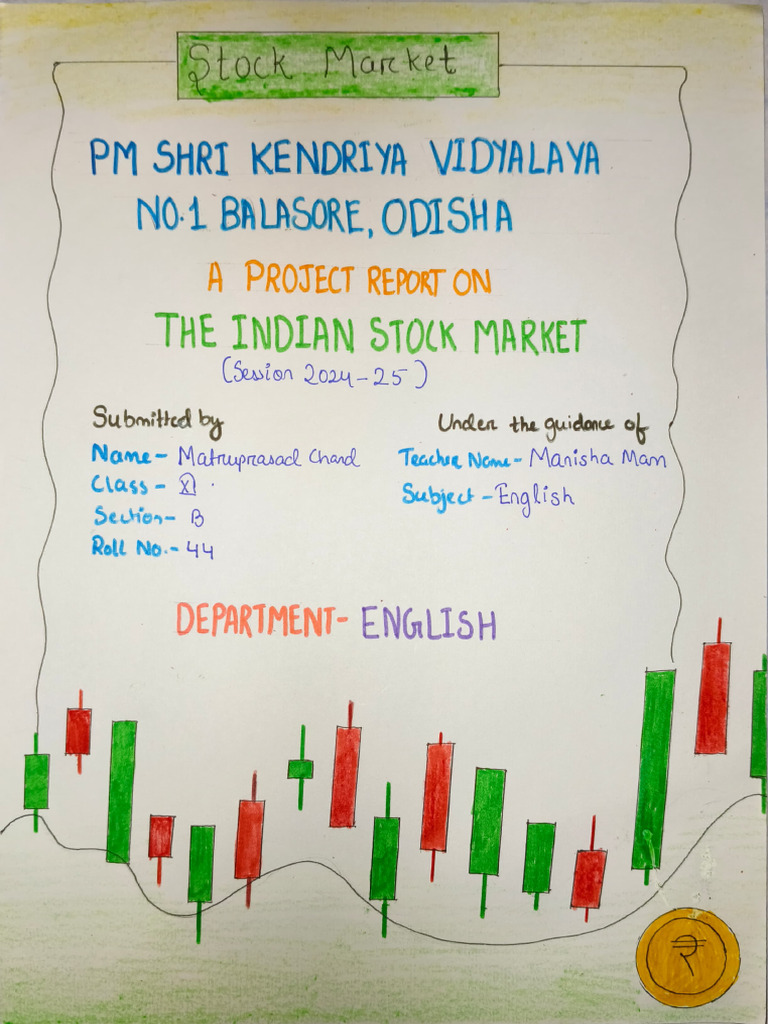 Stock Market
PM SHRI KENDRIYA VIDYALAYA
NO.1 BALASORE, ODISHA
A PROJECT REPORT ON
THE INDIAN STOCK MARKET
(Session 2024-25)
Submitted by
Under the guidance of
Name- Matruprasad Chand
Teacher Name- Manisha Mam
Class- XI
Subject - English
Section- B
Roll No.- 44
DEPARTMENT- ENGLISH
₹